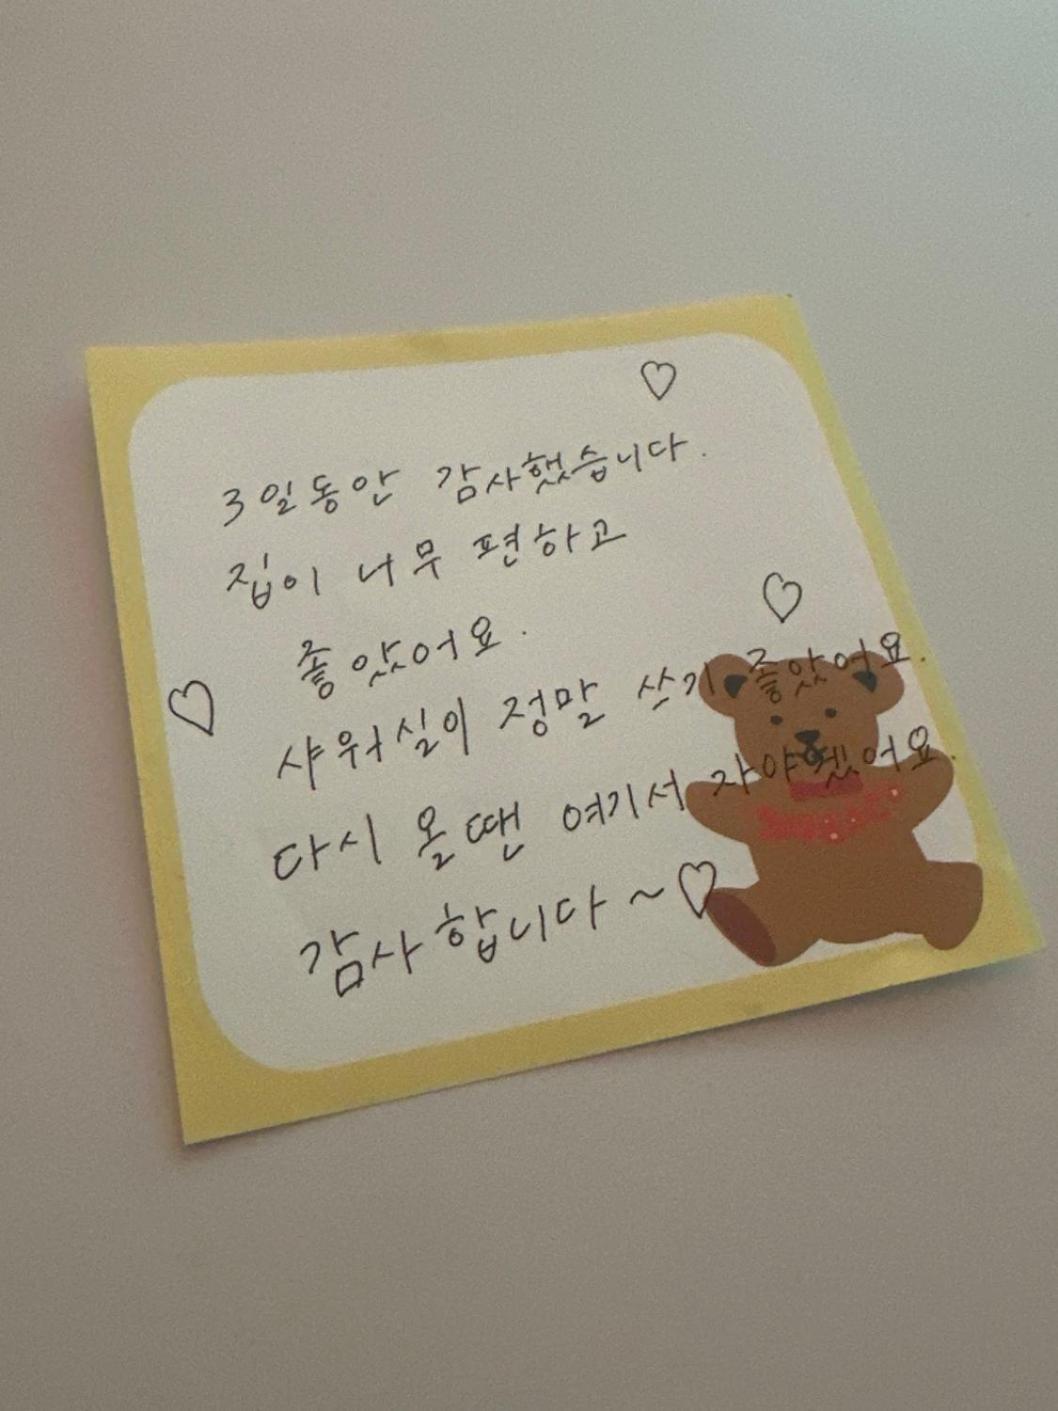 3일동안 감사했습니다.
집이 너무 편하고
좋았어요.
샤워실이 정말 쓰기 좋았어요.
다시 올땐 여기서 자야겠어요.
감사합니다~♡